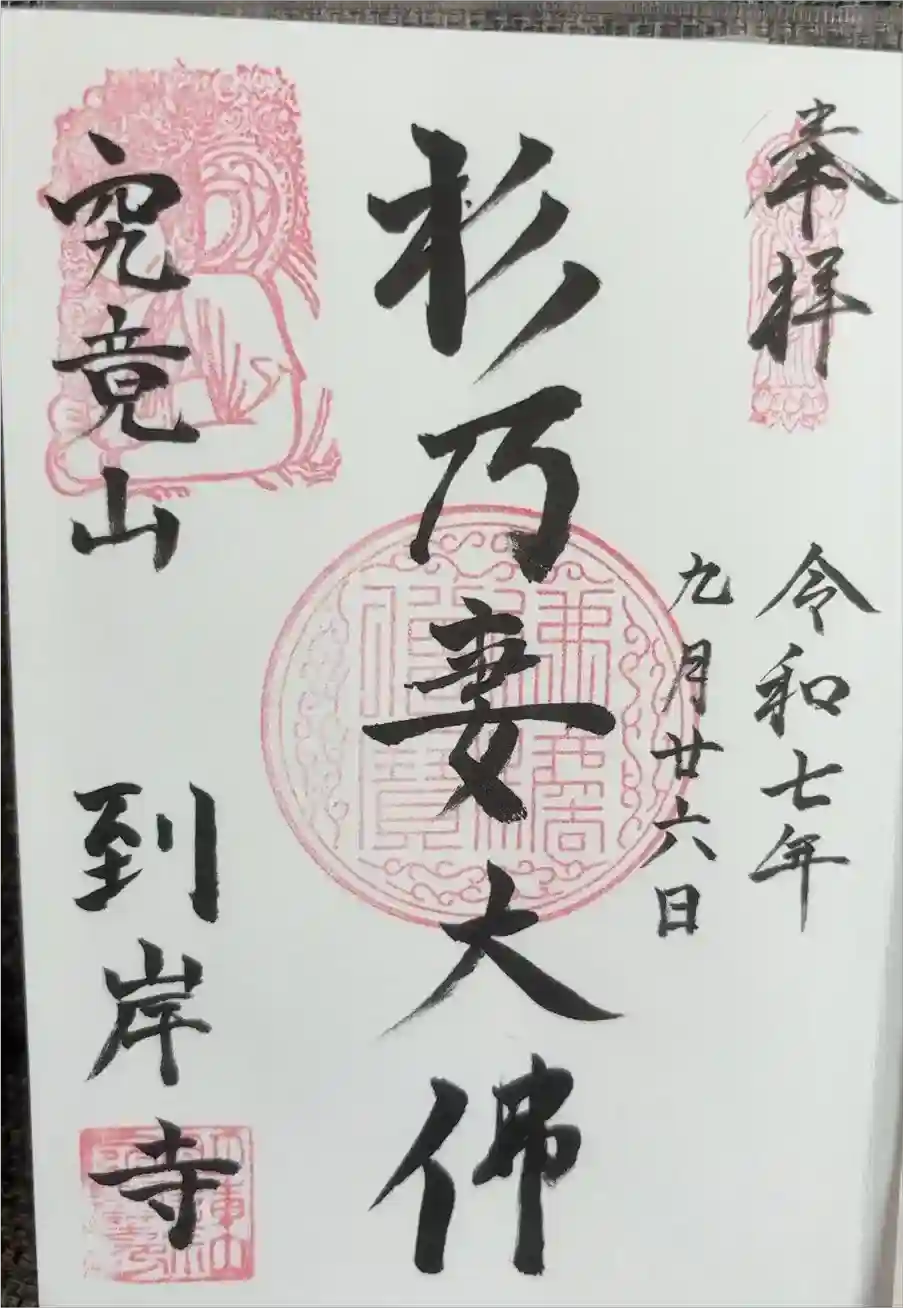 奉拝
令和七年
九月廿六日
杉乃妻大佛
究竟山
到岸寺
佛法僧寶